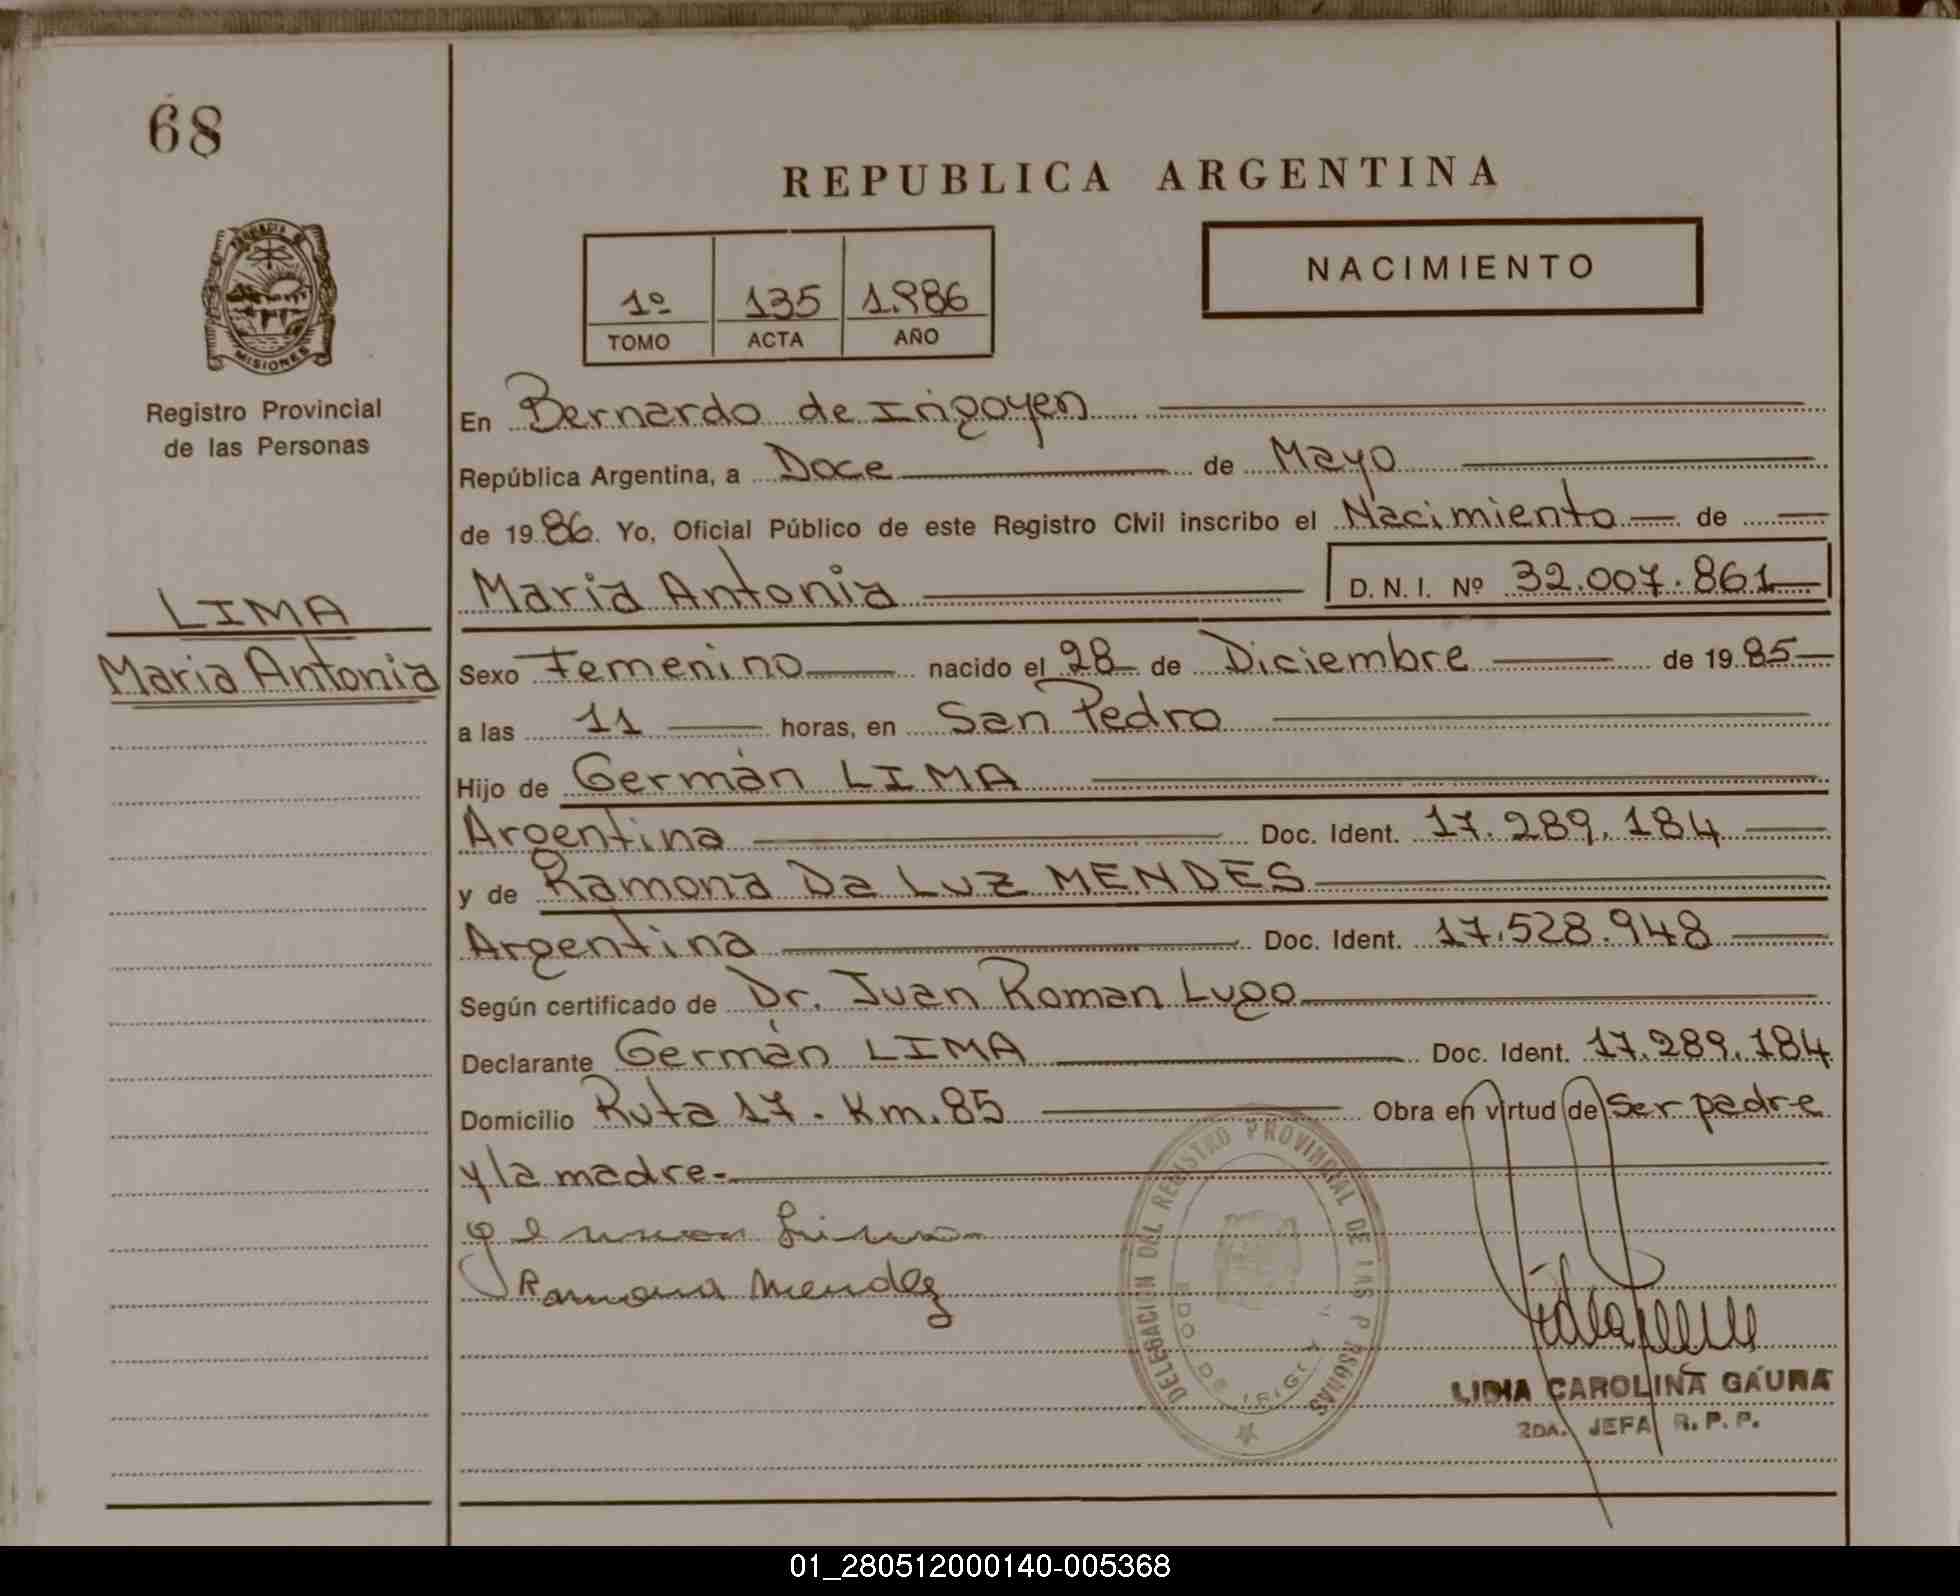 68
REPUBLICA ARGENTINA
NACIMIENTO
1º 135 1.986
TOMO ACTA AÑO
MISIONES
Registro Provincial
de las Personas
LIMA
Maria Antonia
En Bernardo de Irigoyen
República Argentina, a Doce de Mayo
de 1986. Yo, Oficial Público de este Registro Civil inscribo el Nacimiento de
Maria Antonia D. N. I. Nº 32.007.861
Sexo Femenino nacido el 28 de Diciembre de 1985
a las 11 horas, en San Pedro
Hijo de Germán LIMA
Argentina Doc. Ident. 17.289.184
y de Ramona Da Luz MENDES
Argentina Doc. Ident. 17.528.948
Según certificado de Dr. Juan Roman Lugo
Declarante Germán LIMA Doc. Ident. 17.289.184
Domicilio Ruta 17. Km. 85 Obra en virtud de Ser padre
y la madre.-
Ramona Mendez
DELEGACION DEL REGISTRO PROVINCIAL DE LAS P RSONAS
LIDIA CAROLINA GAURA
2DA. JEFA R. P. P.
01_280512000140-005368